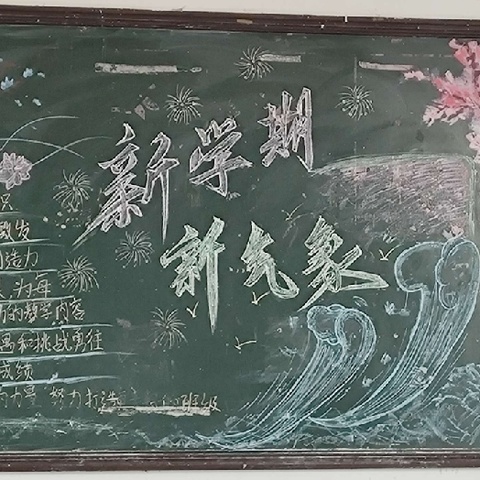 新学期
新气象
识
发
造力
、为每
的教学内容
遇和挑战勇往
成绩
力量 努力打造 班级